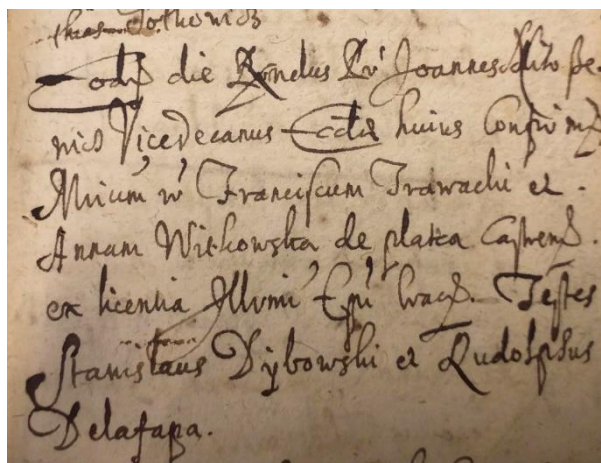 Eodē die Rdndus Dn̄ Joannes
nics Vicedecanus Eccliæ huius Confirm
Mrium īr Franciscum Trawachi et.
Annam Witkowska de platea Castrenſ.
ex licentia Illvmi Epi Crac. Testes
Stanislaus Dybowski et Rudolphus
Delafapa.